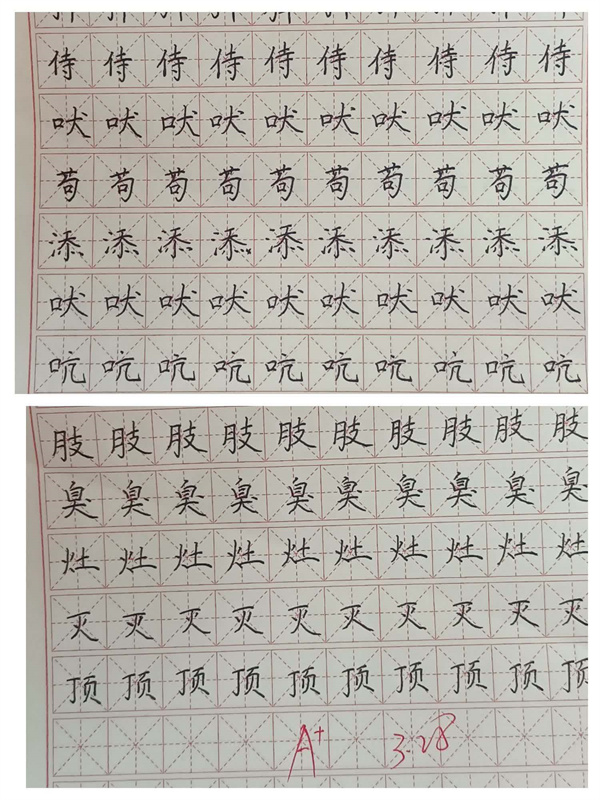 侍侍侍侍侍侍侍侍侍侍
吠吠吠吠吠吠吠吠吠吠
苟苟苟苟苟苟苟苟苟苟
添添添添添添添添添添
吠吠吠吠吠吠吠吠吠吠
吭吭吭吭吭吭吭吭吭吭
肢肢肢肢肢肢肢肢肢肢
臭臭臭臭臭臭臭臭臭臭
灶灶灶灶灶灶灶灶灶灶
灭灭灭灭灭灭灭灭灭灭
顶顶顶顶顶顶顶顶顶顶
A+ 3.28